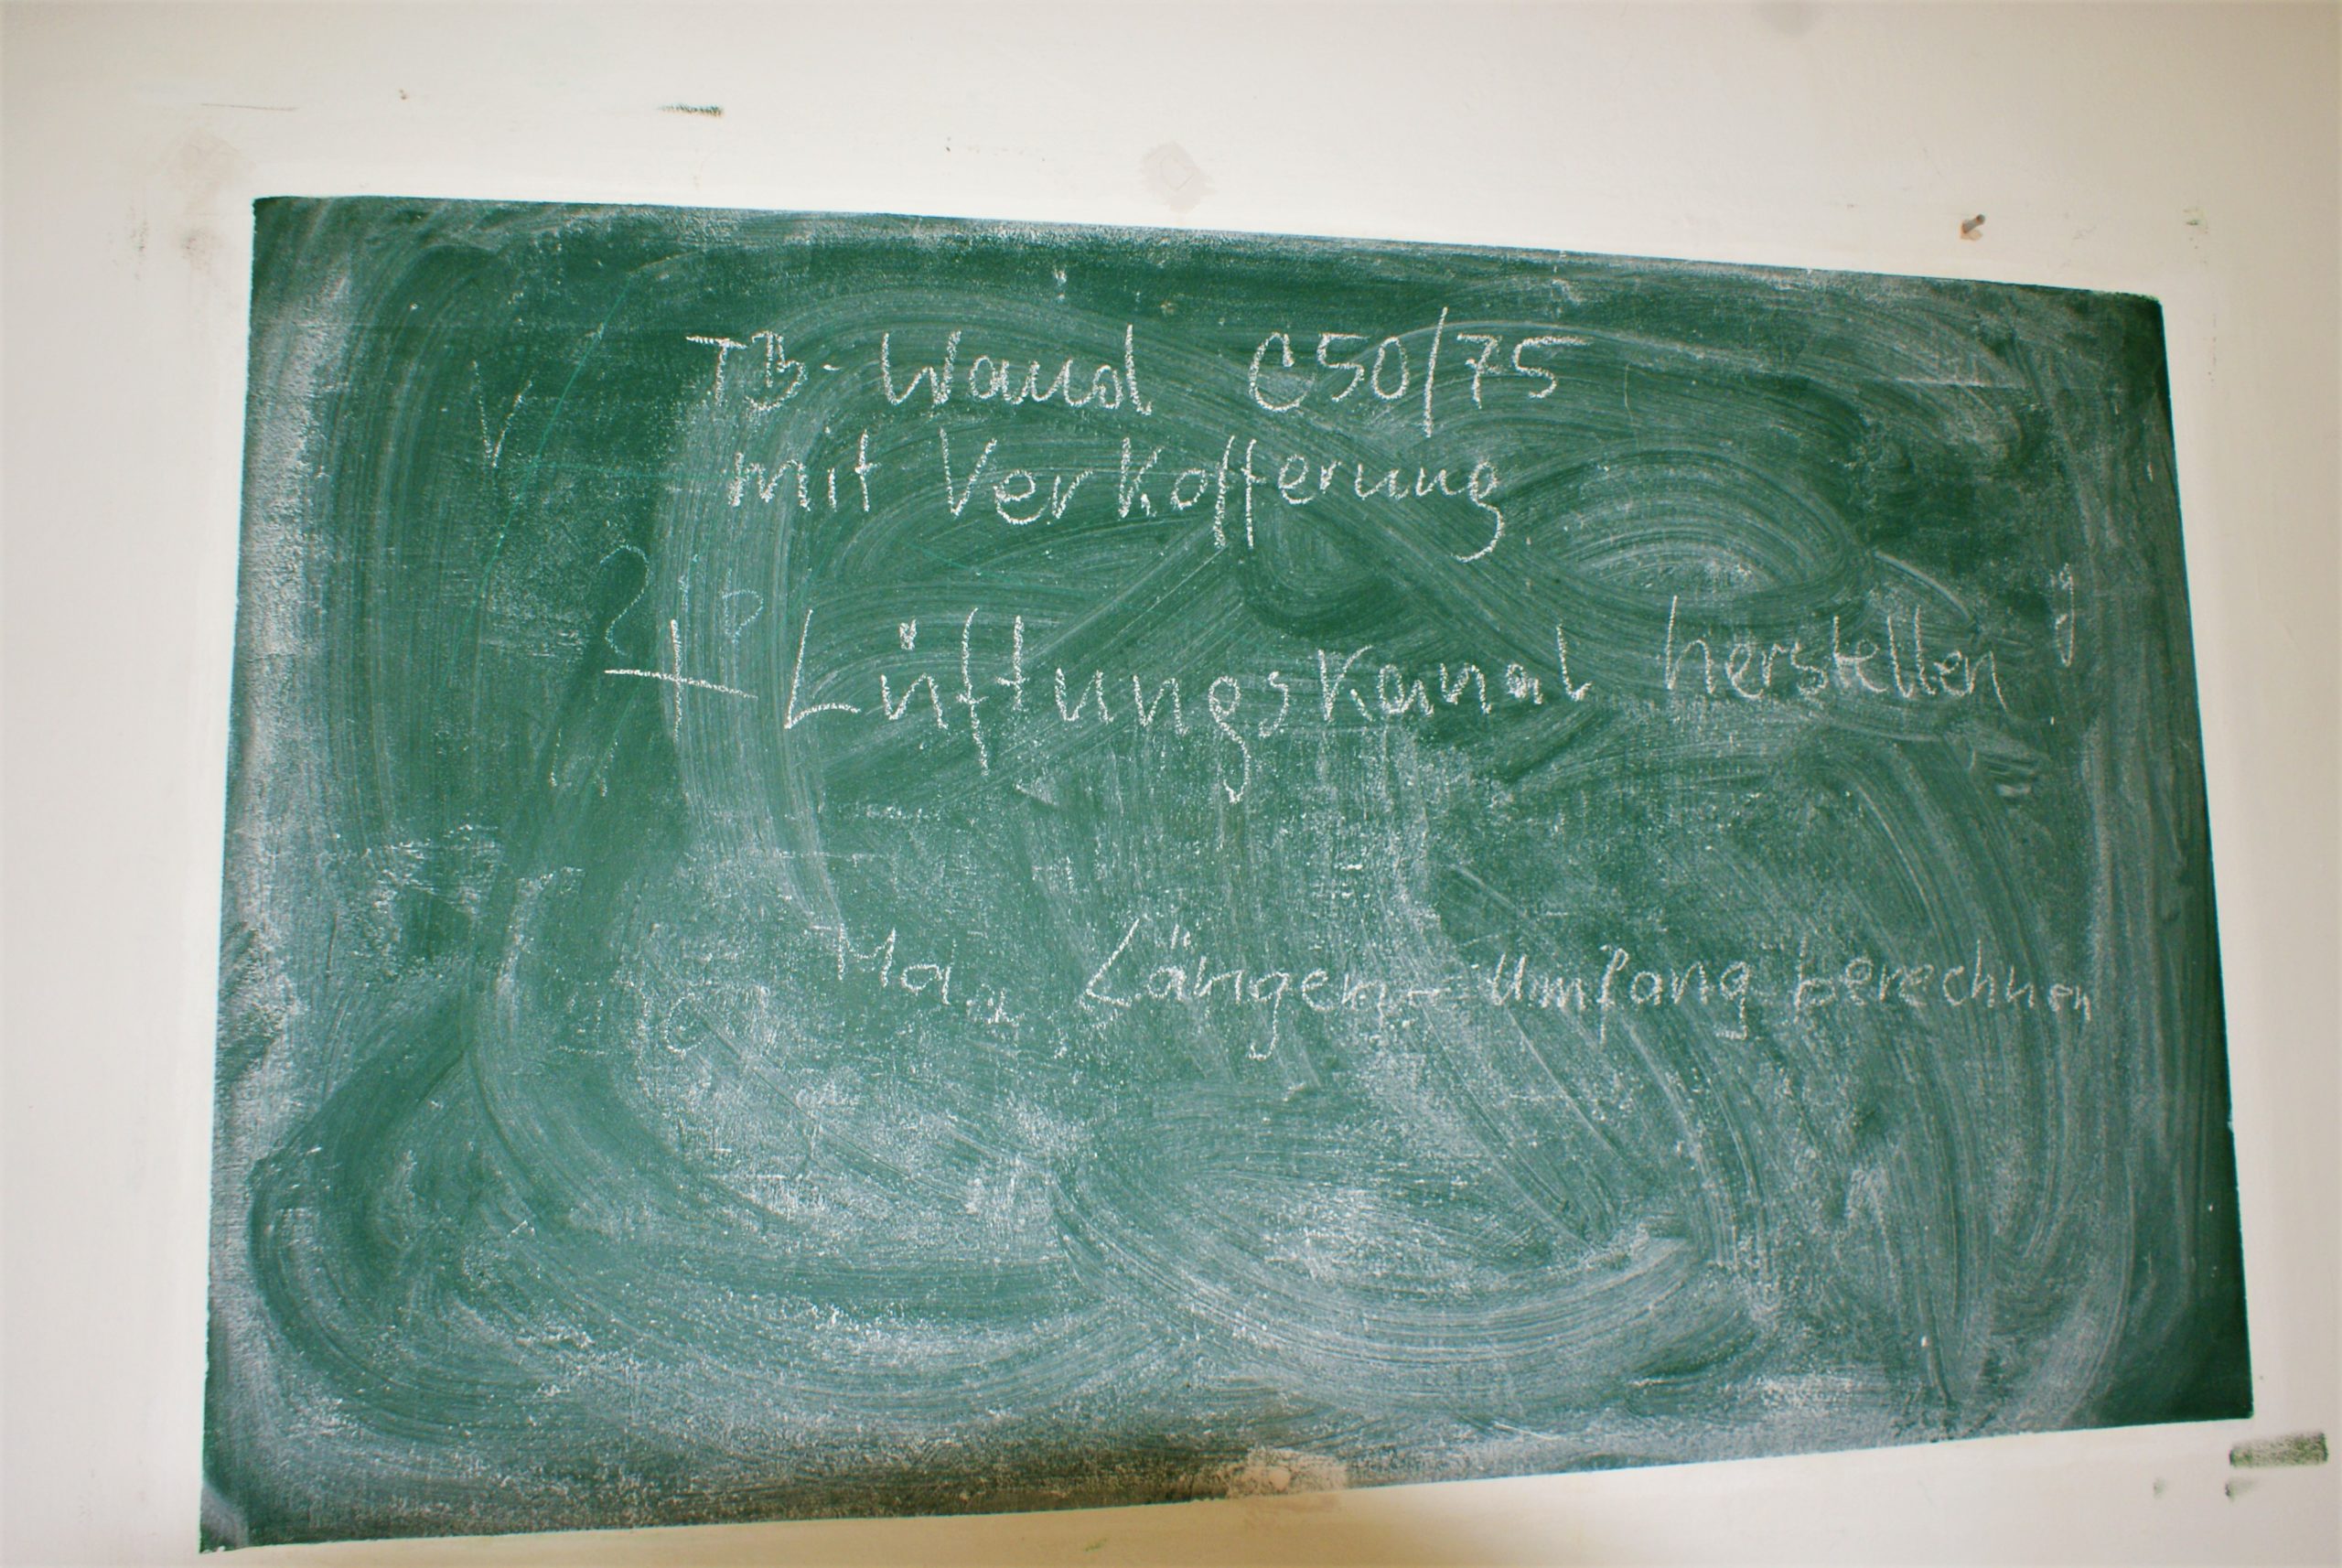 TB-Wand C50/75
mit Verkofferung
+ Lüftungskanal herstellen
Längen- Umfang berechnen